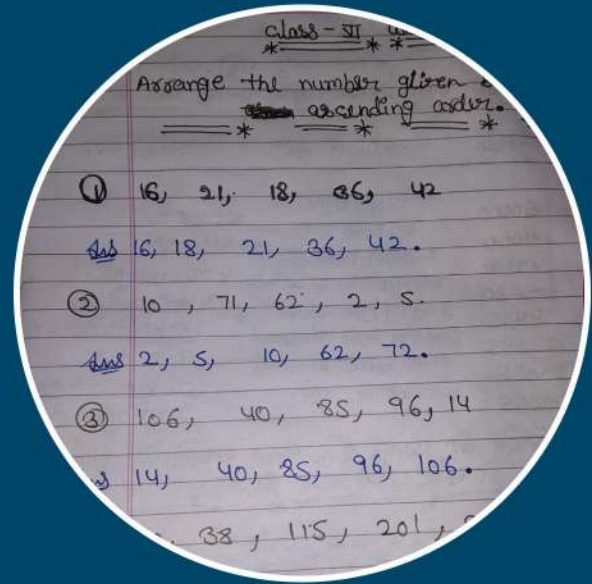 Class - VI,
Arrange the number given
ascending order.
① 16, 21, 18, 36, 42
Ans 16, 18, 21, 36, 42.
② 10, 71, 62, 2, 5.
Ans 2, 5, 10, 62, 72.
③ 106, 40, 85, 96, 14
14, 40, 85, 96, 106.
38, 115, 201,